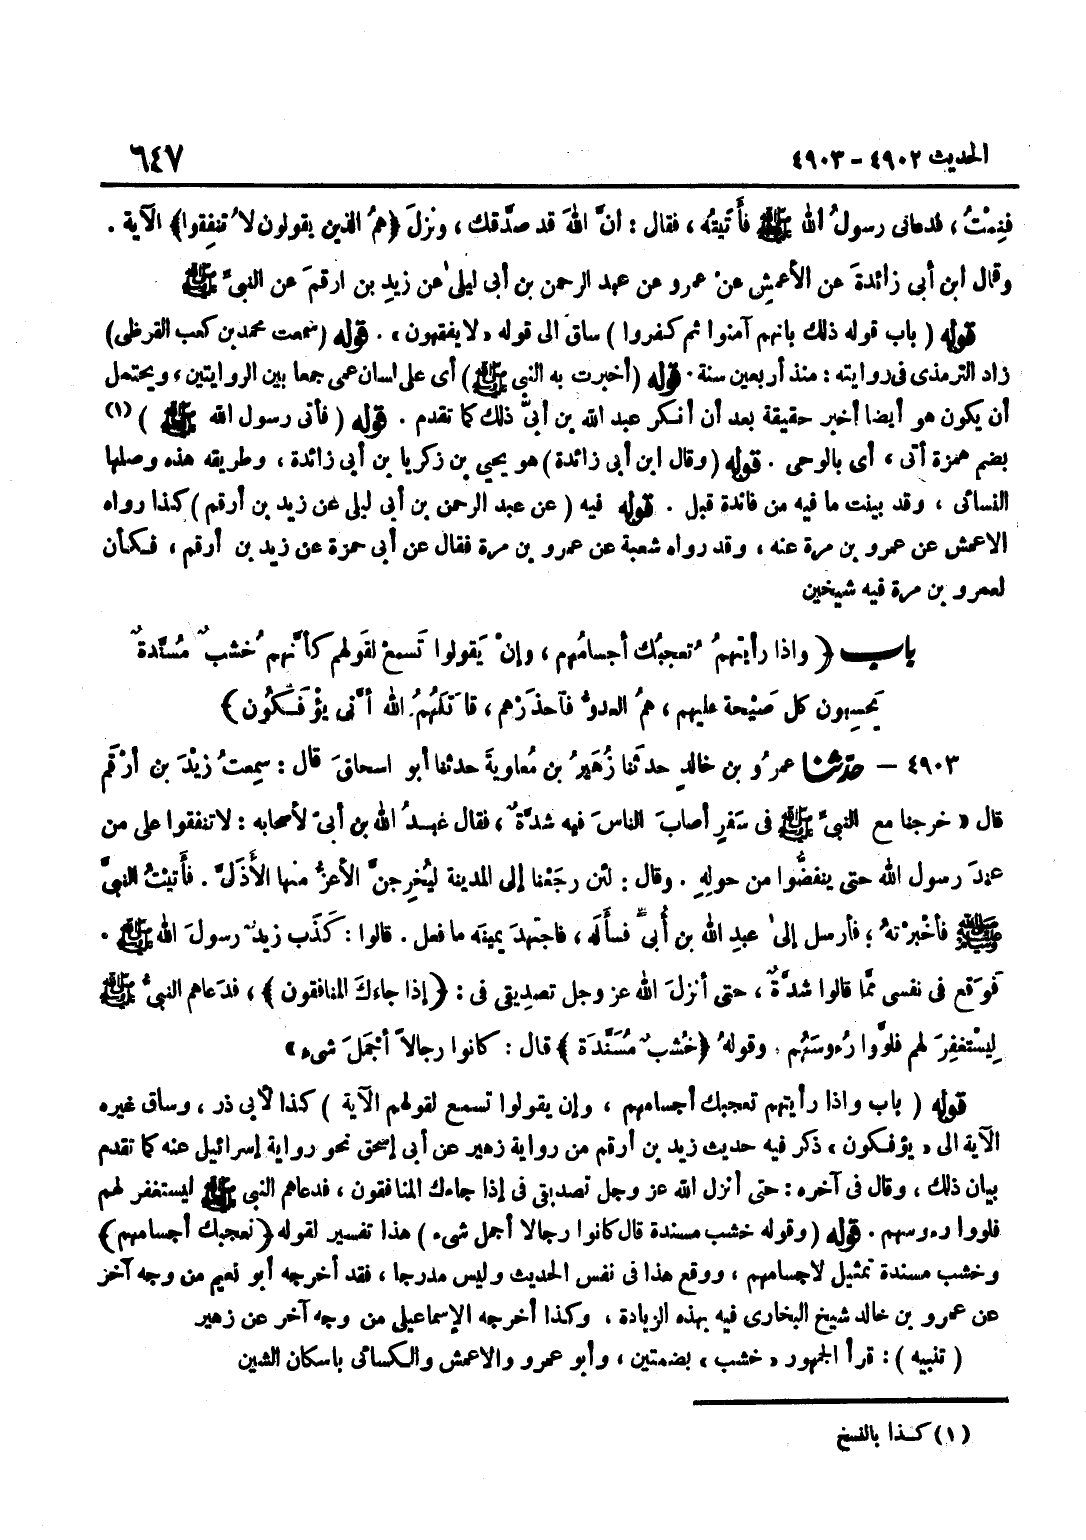 الحديث ٤٩٠٢ - ٤٩٠٣
٦٤٧
فنِمْتُ ، فدعانى رسولُ الله ﷺ فأَتيتُه ، فقال : انَّ اللهَ قد صدَّقك ، ونزلَ ﴿همُ الذين يقولون لا تُنفِقوا﴾ الآية .
وقال ابن أبى زائدةَ عن الأعمشِ عنْ عمرو عن عبد الرحمن بن أبى ليلى عن زيدِ بن ارقمَ عن النبىِّ ﷺ
قوله ( باب قوله ذلك بانهم آمنوا ثم كفروا ) ساق الى قوله « لا يفقهون » . قوله (سمعت محمد بن كعب القرظى)
زاد الترمذى فى روايته : منذ أربعين سنة . قوله (أخبرت به النبى ﷺ) أى على لسان عمى جمعا بين الروايتين ، ويحتمل
أن يكون هو أيضا أخبر حقيقة بعد أن أنكر عبد الله بن أبىّ ذلك كما تقدم . قوله ( فأتى رسول الله ﷺ ) (١)
بضم همزة أتى ، أى بالوحى . قوله (وقال ابن أبى زائدة) هو يحيى بن زكريا بن أبى زائدة ، وطريقه هذه وصلها
النسائى ، وقد بينت ما فيه من فائدة قبل . قوله فيه ( عن عبد الرحمن بن أبى ليلى عن زيد بن أرقم ) كذا رواه
الاعمش عن عمرو بن مرة عنه ، وقد رواه شعبة عن عمرو بن مرة فقال عن أبى حمزة عن زيد بن أرقم ، فكأن
لعمرو بن مرة فيه شيخين
باب ﴿ واذا رأيتهمُ تُعجبُك أجسامُهم ، وإنْ يَقولوا تَسمعْ لقَولهم كأنَّهم خُشبٌ مُسنَّدةٌ
يَحسِبون كل صَيْحة عليهم ، همُ العدوُّ فآحذَرْهم ، قاتَلَهُمُ الله أنَّى يؤْفَكُون ﴾
٤٩٠٣ - حدّثنا عمرُو بن خالدٍ حدثنا زُهَيرُ بن مُعاويةَ حدثنا أبو اسحاقَ قال : سمِعتُ زيْدَ بن أرْقَم
قال « خرجنا مع النبىِّ ﷺ فى سَفرٍ أصابَ الناسَ فيه شدَّةٌ ، فقال عَبدُ الله بن أبىّ لأصحابه : لا تنفقوا على من
عندَ رسول الله حتى ينفضُّوا من حولِهِ . وقال : لئن رجَعْنا إلى المدينة ليُخرِجنَّ الأعزُّ منها الأذَلَّ . فأتيْتُ النبىَّ
ﷺ فأخبرْتهُ ؛ فأرسل إلى عبدِ الله بن أُبىّ فسألَه ، فاجتهدَ يمينَه ما فعل . قالوا : كَذَب زيدٌ رسولَ الله ﷺ .
فوَقع فى نفسى ممَّا قالوا شدَّةٌ ، حتى أنزلَ الله عز وجل تصديقى فى : ﴿ إذا جاءَكَ المنافقون ﴾ ، فدعاهم النبىُّ ﷺ
لِيسْتغفِرَ لهم فلوَّوا رُءوسَهُم . وقولهُ ﴿خُشبٌ مُسَنَّدَة ﴾ قال : كانوا رجالاً أجْمَلَ شىء »
قوله ( باب واذا رأيتهم تعجبك أجسامهم ، وإن يقولوا تسمع لقولهم الآية ) كذا لأبى ذر ، وساق غيره
الآية الى « يؤفكون » ذكر فيه حديث زيد بن أرقم من رواية زهير عن أبى إسحق نحو رواية إسرائيل عنه كما تقدم
بيان ذلك ، وقال فى آخره : حتى أنزل الله عز وجل تصديقى فى إذا جاءك المنافقون ، فدعاهم النبى ﷺ ليستغفر لهم
فلووا رءوسهم . قوله (وقوله خشب مسندة قال كانوا رجالا أجمل شىء ) هذا تفسير لقوله ﴿ تعجبك أجسامهم﴾
وخشب مسندة تمثيل لاجسامهم ، ووقع هذا فى نفس الحديث وليس مدرجا ، فقد أخرجه أبو نعيم من وجه آخر
عن عمرو بن خالد شيخ البخارى فيه بهذه الزيادة ، وكذا أخرجه الإسماعيلى من وجه آخر عن زهير
( تنبيه ) : قرأ الجمهور « خشب » بضمتين ، وأبو عمرو والاعمش والكسائى باسكان الشين
(١) كذا بالنسخ